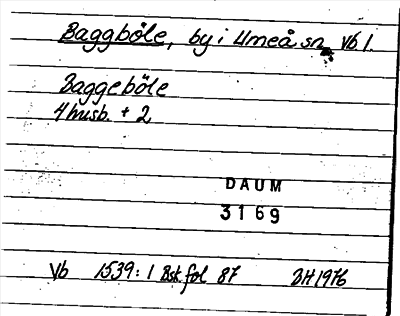 Baggböle, by i Umeå sn, Vb l.
Baggeböle
4 husb. + 2
DAUM
3169
Vb 1539: 1 Bsk fol 87 BH 1976